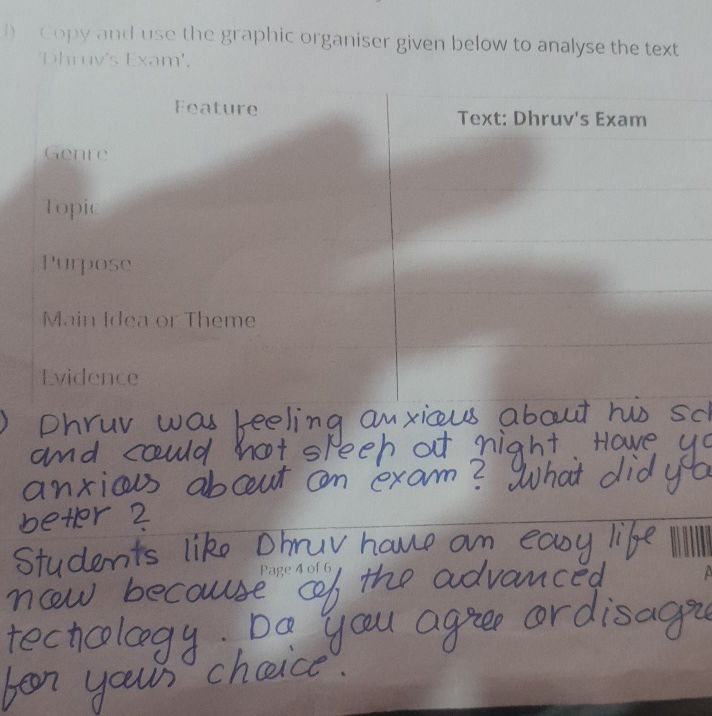 Copy and use the graphic organiser given below to analyse the text
'Dhruv's Exam'.
Feature
Text: Dhruv's Exam
Genre
Topic
Purpose
Main Idea or Theme
Evidence
Dhruv was feeling anxious about his sch
and could not sleep at night. Have yo
anxious about an exam? What did you
better?
Students like Dhruv have an easy life
Page 4 of 6
now because of the advanced
techology. Do you agree or disagre
for your choice.